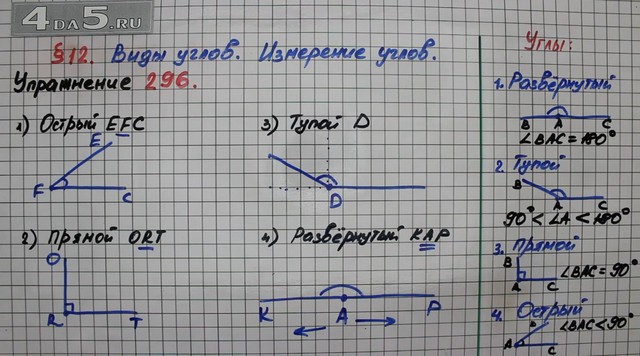 4DA5.RU
§12. Виды углов. Измерение углов.
Упражнение 296.
1) Острый EFC
E
F
C
2) Прямой ORT
O
R
T
3) Тупой D
D
4) Развёрнутый KAP
K
A
P
Углы:
1. Развёрнутый
B A C
∠BAC = 180°
2. Тупой
B
A C
90° < ∠A < 180°
3. Прямой
B
∠BAC = 90°
A C
4. Острый
B
∠BAC < 90°
A C